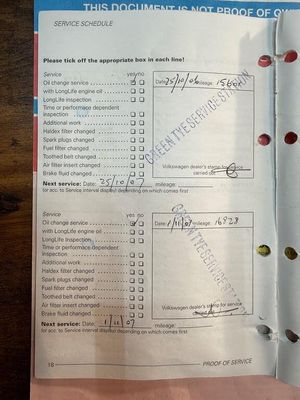 THIS DOCUMENT IS NOT PROOF OF OW
SERVICE SCHEDULE
Please tick off the appropriate box in each line!
Service yes no
Oil change service
with LongLife engine oil
LongLife Inspection
Time or performance dependent
inspection
Additional work
Haldex filter changed
Spark plugs changed
Fuel filter changed
Toothed belt changed
Air filter insert changed
Brake fluid changed
Date: 25/10/06 mileage:
GREEN TYE SERVICE STATION
Volkswagen dealer's stamp for service
carried out
Next service: Date: 25/10/07 mileage:
(or acc. to Service interval display) depending on which comes first
Service yes no
Oil change service
with LongLife engine oil
LongLife Inspection
Time or performance dependent
inspection
Additional work
Haldex filter changed
Spark plugs changed
Fuel filter changed
Toothed belt changed
Air filter insert changed
Brake fluid changed
Date: 1/11/07 mileage: 16828
GREEN TYE SERVICE STATION
Volkswagen dealer's stamp for service
carried out
Next service: Date: 1/11/07 mileage:
(or acc. to Service interval display) depending on which comes first
18 PROOF OF SERVICE